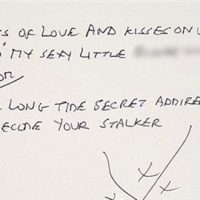 S OF LOVE AND KISSES ON
MY SEXY LITTLE
LONG TIDE SECRET ADDIRE
ECODE YOUR STALKER
X
X
X